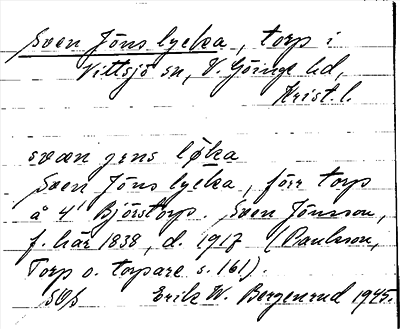 Sven Jöns lycka, torp i
Vittsjö sn, V. Göinge hd,
Krist. l.
svæn jens løka
Sven Jöns lycka, förr torp
å 4¹ Björstorp. Sven Jönsson,
f. här 1838, d. 1917 (Paulsson,
Torp o. torpare s. 161).
Erik W. Bergenrud 1945.